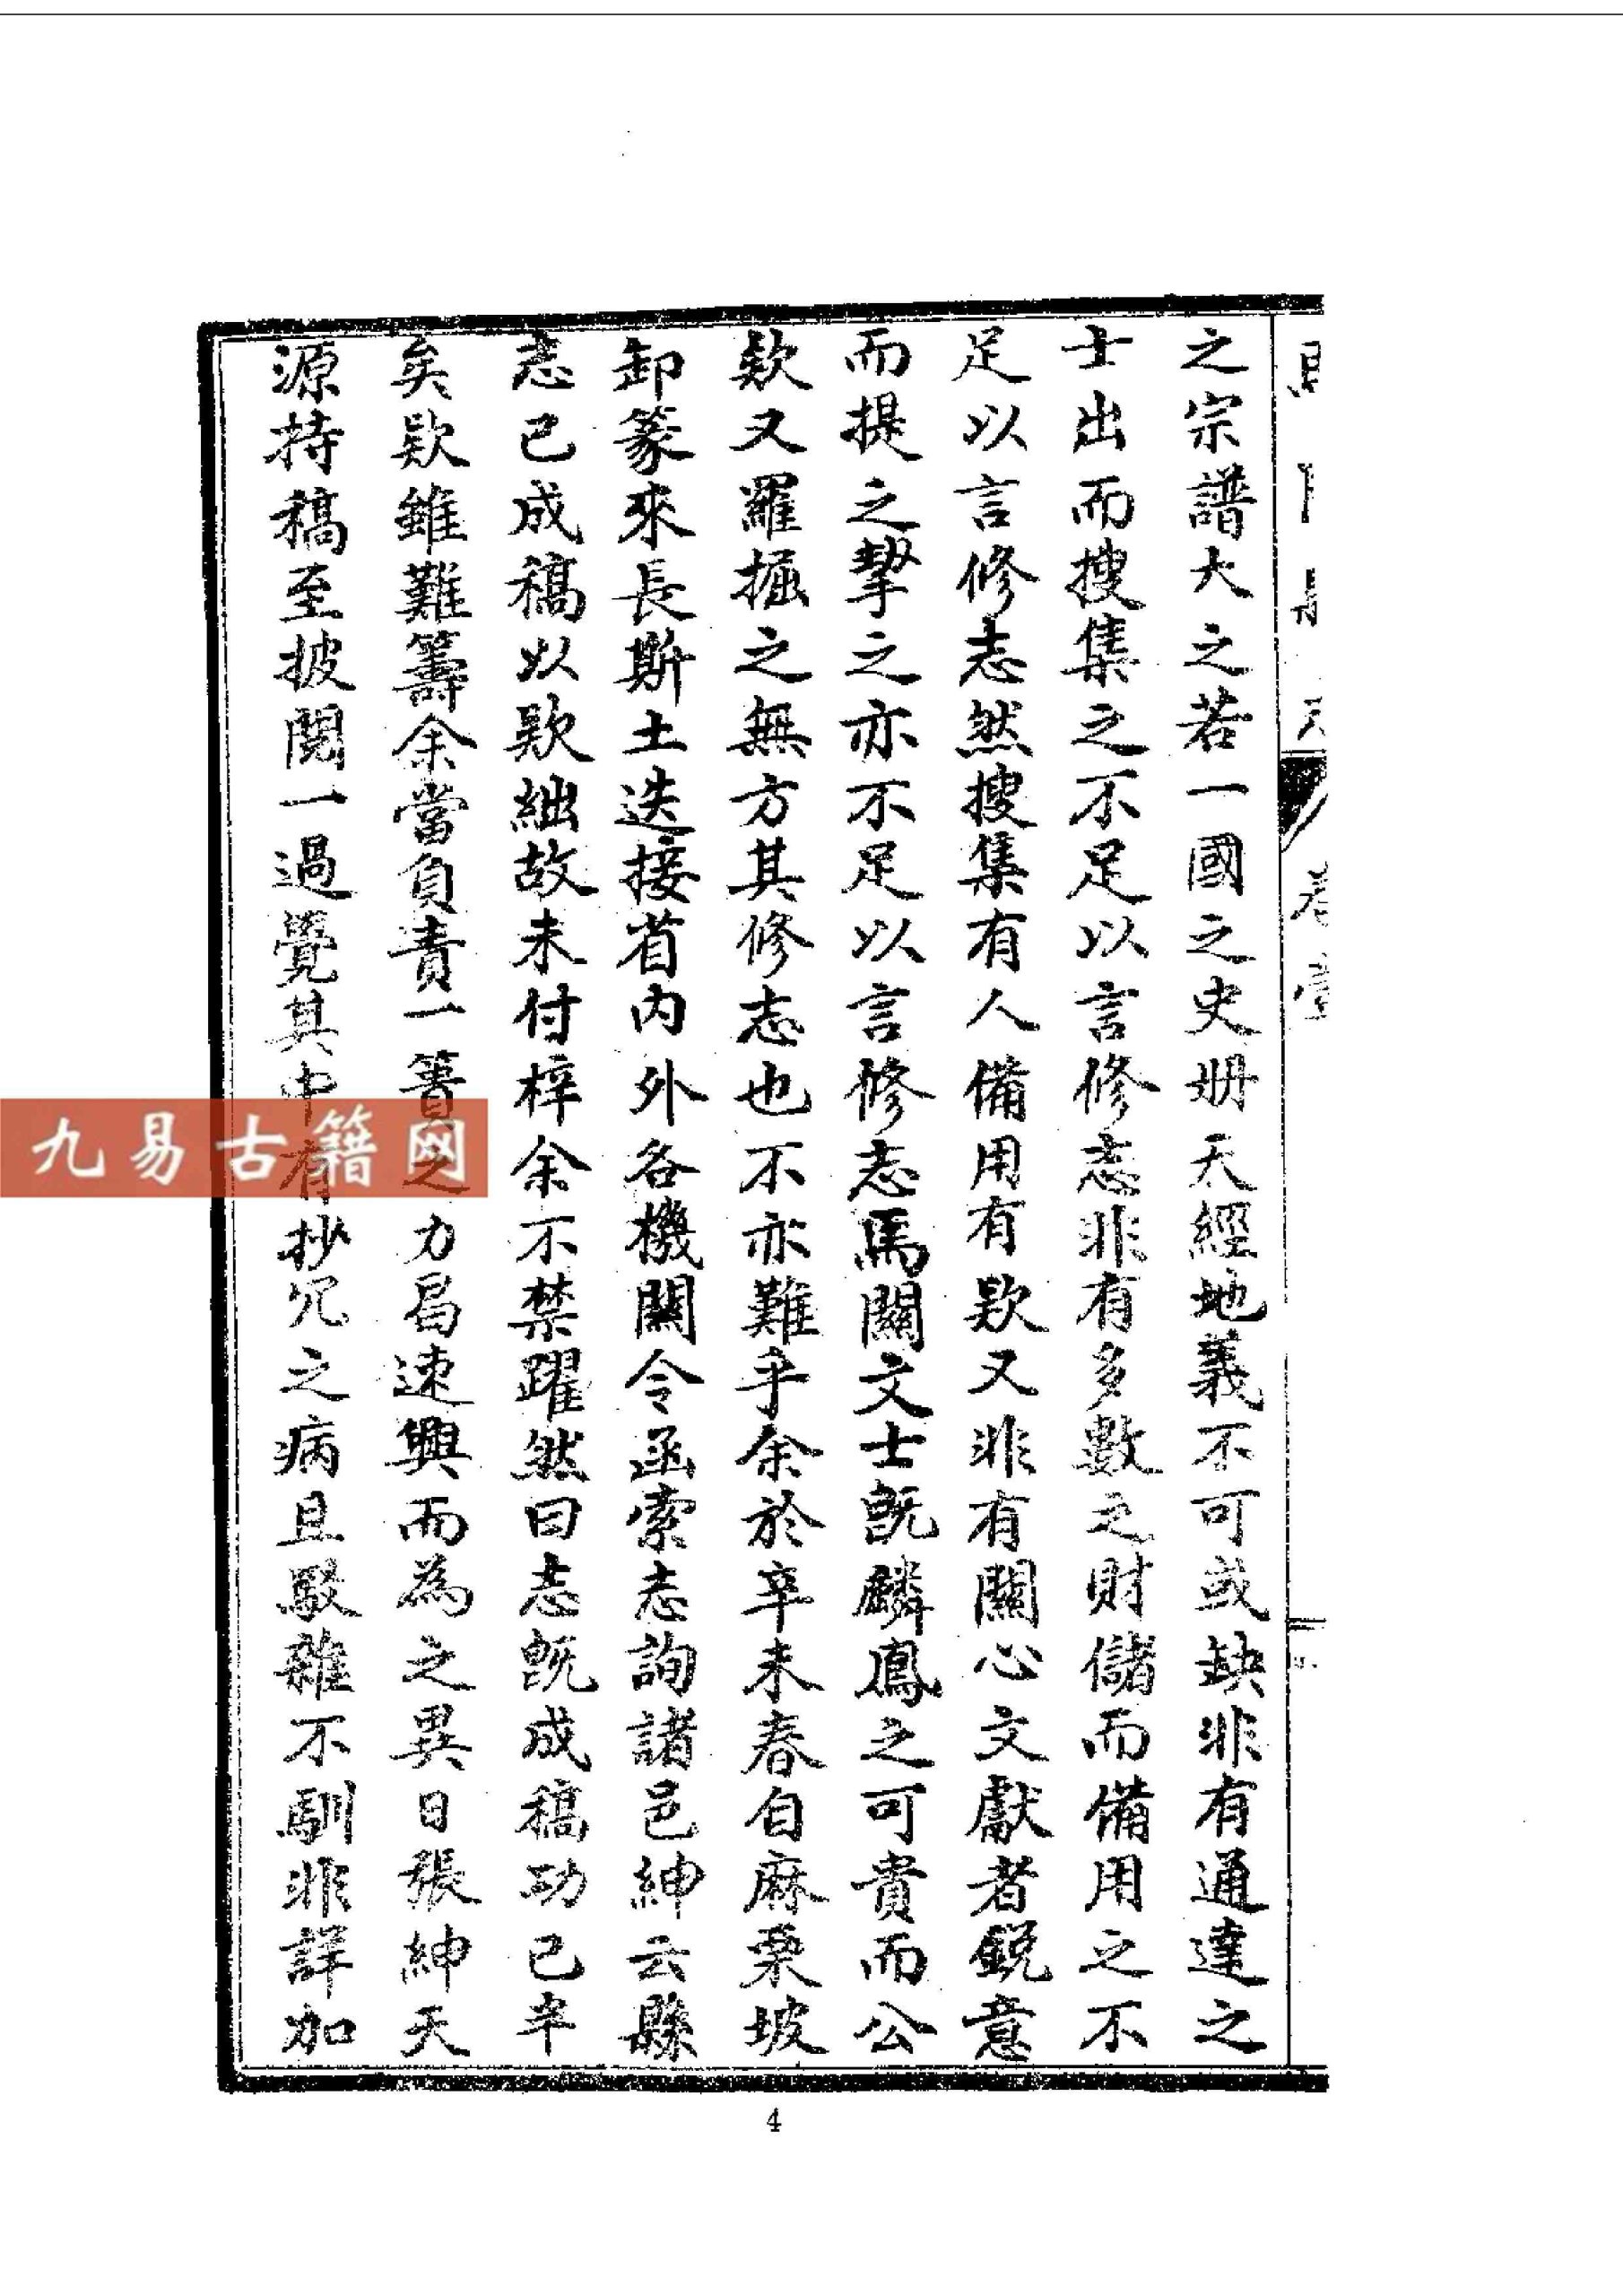 之宗譜大之若一國之史册天經地義不可或缺非有通達之
士出而搜集之不足以言修志非有多數之財儲而備用之不
足以言修志然搜集有人備用有欵又非有關心文獻者鋭意
而提之挈之亦不足以言修志馬關文士旣麟鳳之可貴而公
欵又羅掘之無方其修志也不亦難乎余於辛未春自麻栗坡
卸篆來長斯土迭接省内外各機關令函索志詢諸邑紳云縣
志已成稿以欵絀故未付梓余不禁躍然曰志旣成稿功已半
矣欵雖難籌余當負責一簣之力曷速興而為之異日張紳天
源持稿至披閱一過覺其中有抄冗之病且駁雜不馴非詳加
卷壹
4
九易古籍网